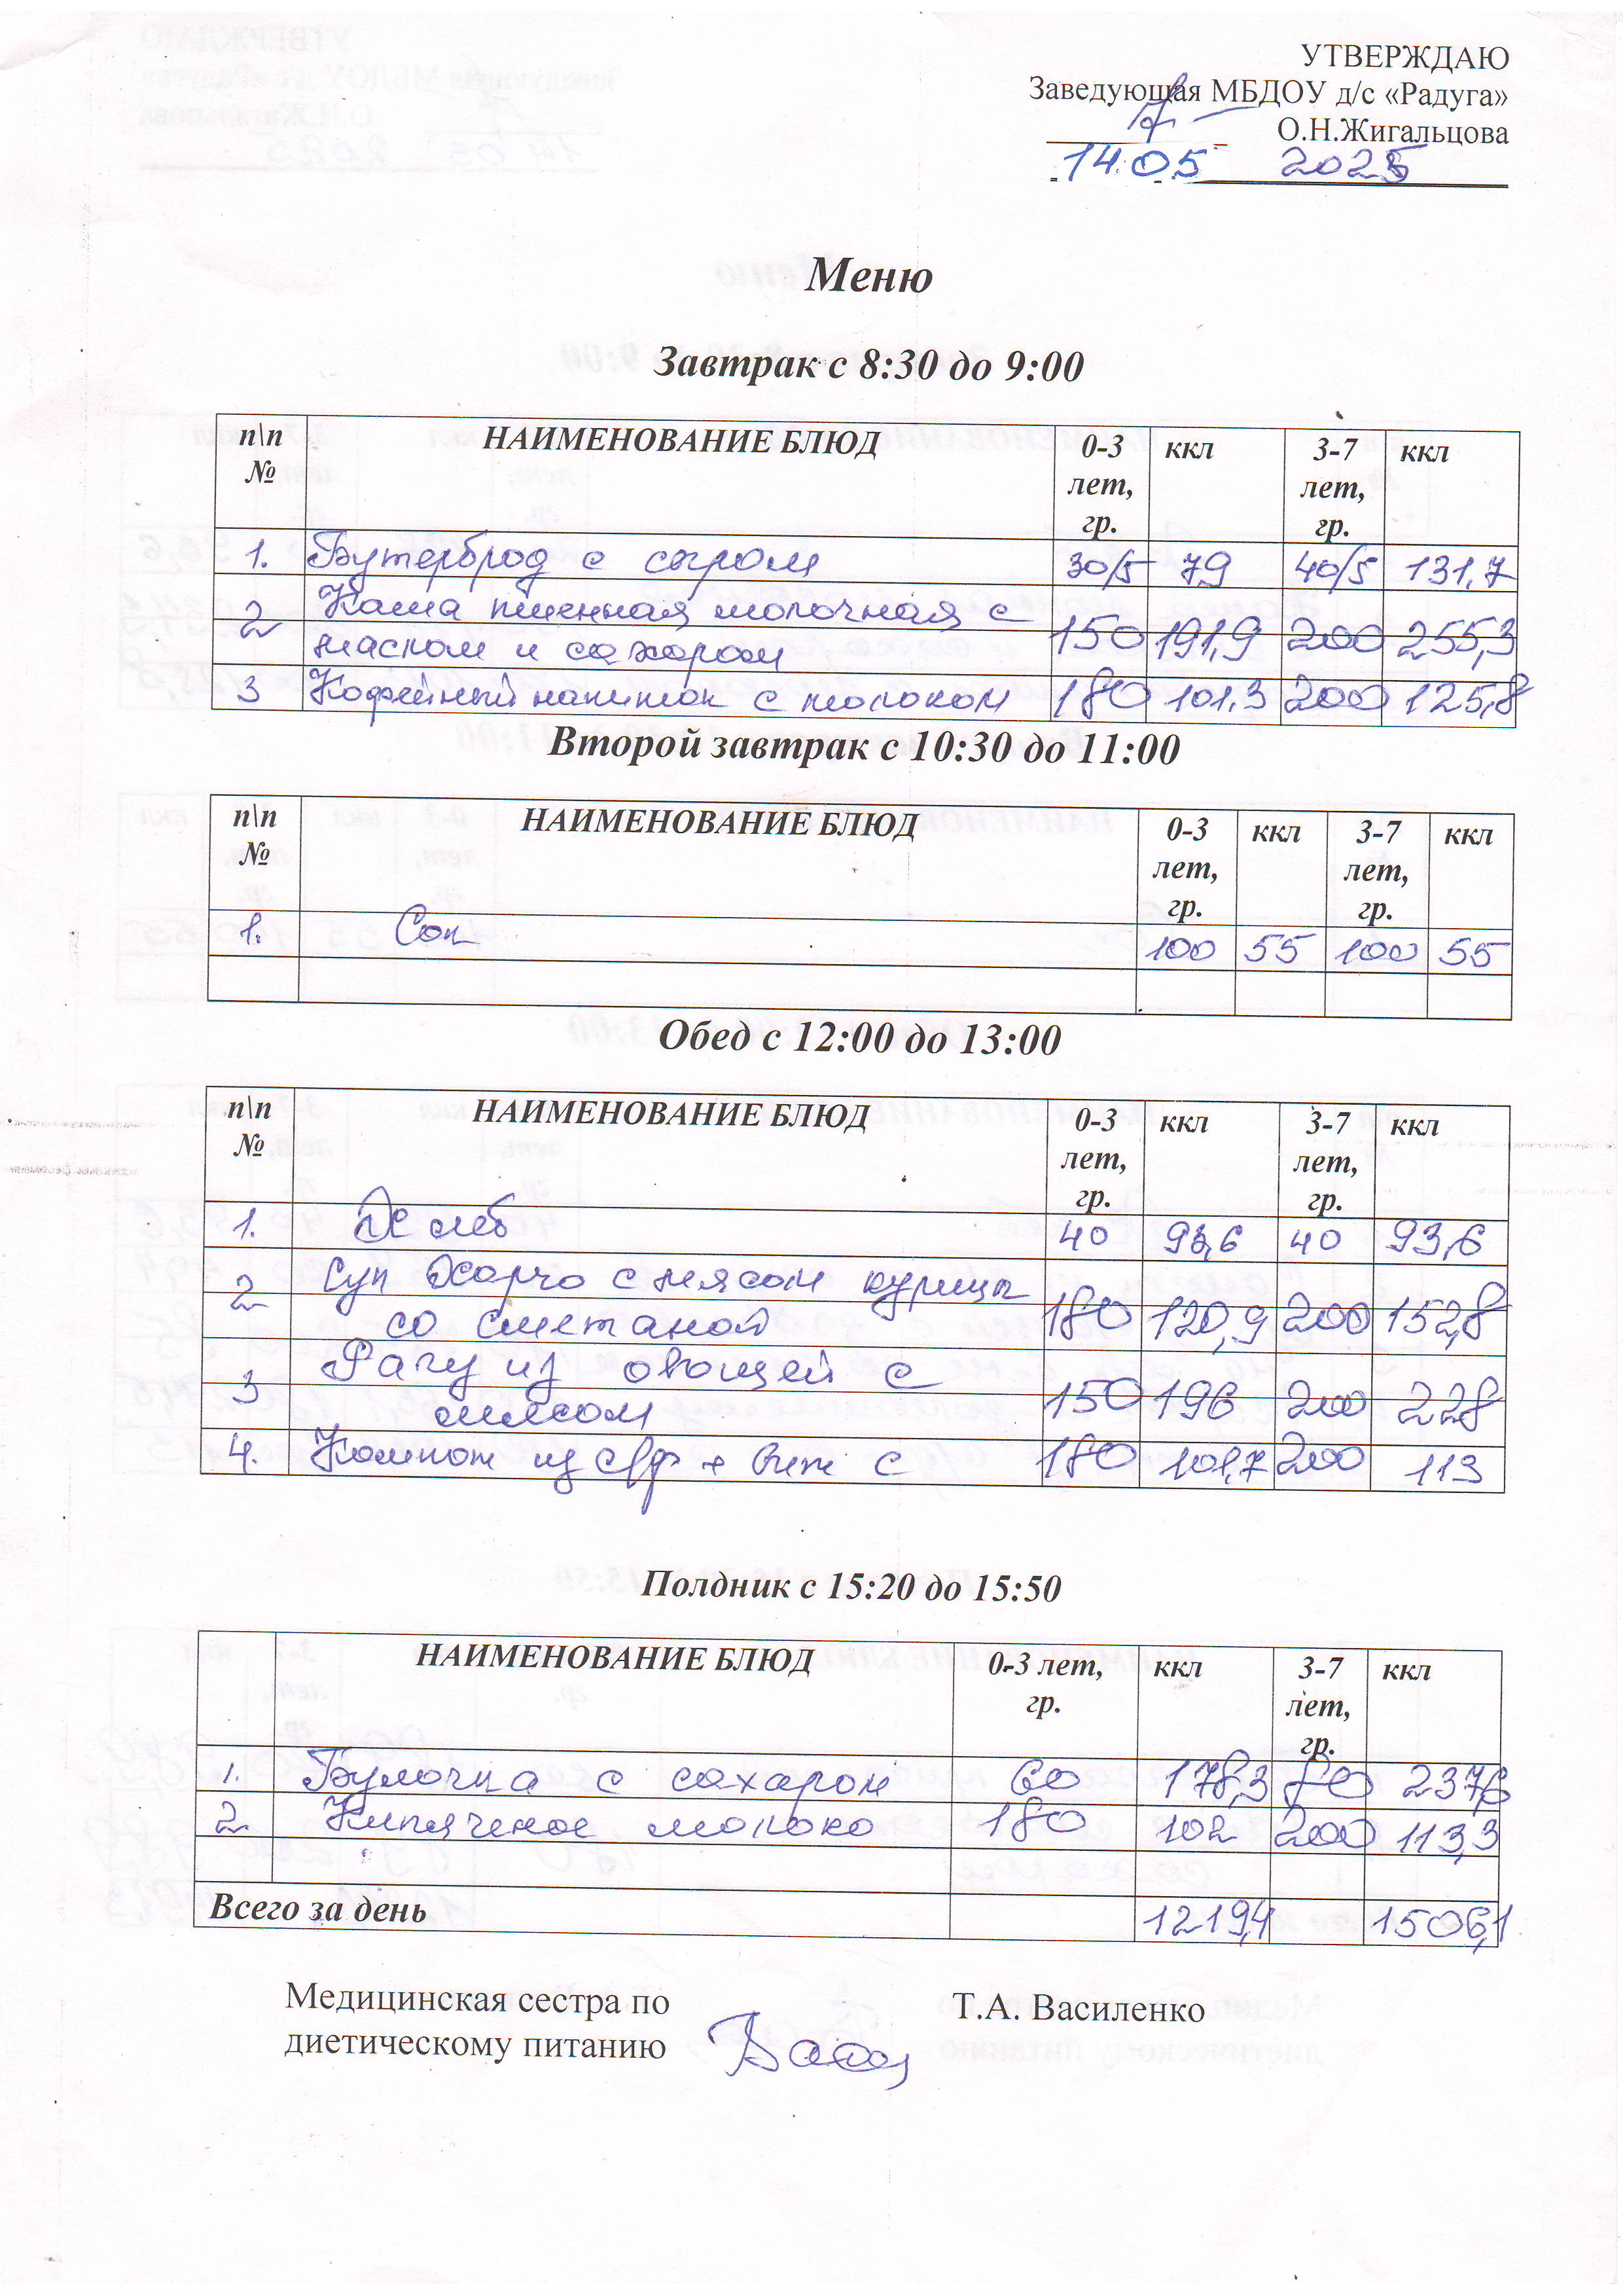 УТВЕРЖДАЮ
Заведующая МБДОУ д/с «Радуга»
О.Н.Жигальцова
14.05 2025
Меню
Завтрак с 8:30 до 9:00
п\п № НАИМЕНОВАНИЕ БЛЮД 0-3 лет, гр. ккл 3-7 лет, гр. ккл
1. Бутерброд с сыром 30/5 79 40/5 131,7
2 Каша пшенная молочная с
маслом и сахаром 150 191,9 200 255,3
3 Кофейный напиток с молоком 180 101,3 200 125,8
Второй завтрак с 10:30 до 11:00
п\п № НАИМЕНОВАНИЕ БЛЮД 0-3 лет, гр. ккл 3-7 лет, гр. ккл
1. Сок 100 55 100 55
Обед с 12:00 до 13:00
п\п № НАИМЕНОВАНИЕ БЛЮД 0-3 лет, гр. ккл 3-7 лет, гр. ккл
1. Хлеб 40 93,6 40 93,6
2 Суп Харчо с мясом курицы
со сметаной 180 120,9 200 152,8
3 Рагу из овощей с
мясом 150 196 200 228
4. Компот из с/ф + вит с 180 101,7 200 113
Полдник с 15:20 до 15:50
НАИМЕНОВАНИЕ БЛЮД 0-3 лет, гр. ккл 3-7 лет, гр. ккл
1. Булочка с сахаром 60 178,3 80 237,6
2. Кипяченое молоко 180 102 200 113,3
Всего за день 1219,4 1506,1
Медицинская сестра по
диетическому питанию Т.А. Василенко